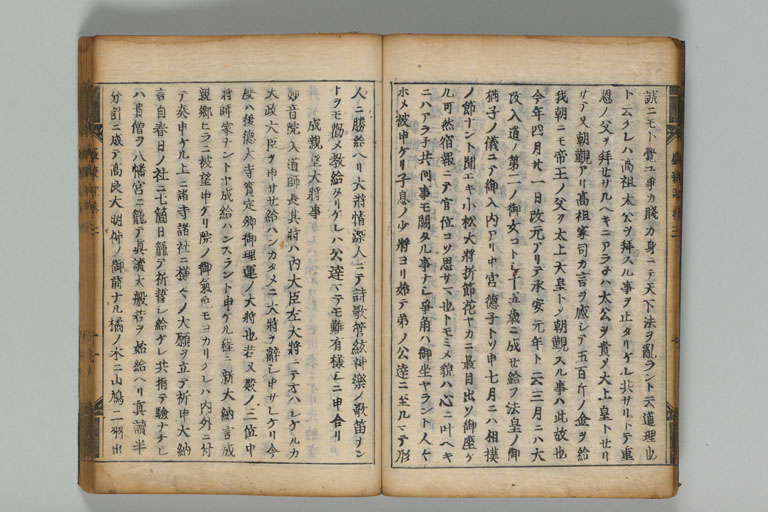 誠ニモト覺ユ事カ賤カ身ニテ天下法ヲ亂ラント云道理也
ト云ケレハ高祖太公ヲ拜スル事ヲ止タリケレ共サリトテ重
恩ノ父ヲ拜セサルヘキニアラネハ太公ヲ貴メ大上皇トセリ
サテ又朝覲アリ高祖家司カ言ヲ感シテ五百斤ノ金ヲ給
我朝ニモ帝王ノ父ヲ太上天皇トメ朝覲スル事ハ此故也
今年四月廿一日改元アリテ承安元年ト云三月ニハ大
政入道ノ第二ノ御女コトシ十五歳ニ成セ給フ法皇ノ御
猶子ノ儀ニテ御入内アリ中宮德子トソ申七月ニハ相撲
ノ節ナント聞エキ小松大將折節花ヤカニ最目出ソ御座ケ
ル可然宿報ニテ官位コソ思サマ也トモミメ貌ハ心ニ叶ヘキ
ニハアラ子共何事モ闕タル事ナシ爭角ハ御坐ヤラント人ヤ
ホメ被申ケリ子息ノ少將ヨリ始テ弟ノ公達ニ至ルマテ形
人ニ勝給ヘリ大將情深人ニテ詩歌管絃神樂ノ歌笛ヲン
トヲモ勸メ教給タリケレハ公達マテモ難有樣ニニ申合リ
成親望大將事
妙音院入道師長其時ハ内大臣左大將ニテオハシケルカ
大政大臣ヲ申サセ給ハンカタメニ大將ヲ辭シ申サレケリ今
度ハ後德大寺實定卿御理運ノ大將也若又殿ノ三位中
將師家ナントヤ成給ハンスラント申ケル程ニ新大納言成
親卿ヒラニ被望申ケリ院ノ御氣色モヨカリケレハ内外ニ付
テ奏申ケル上ニ諸寺諸社ニ樣々ノ大願ヲ立テ祈申大納
言自春日ノ社ニ七箇日籠テ祈誓シ給ケレ共指テ驗ナケレ
ハ貴僧ヲ八幡宮ニ籠テ眞讀大般若ヲ始給ヘリ眞讀半
分計ニ成テ高良大明神ノ御前ナル橘ノ木ニ山鳩二羽出